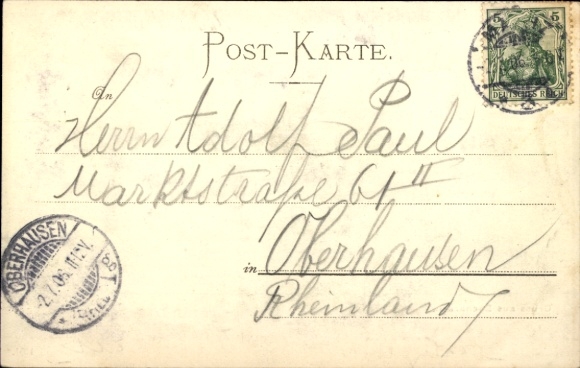 POST-KARTE.
5 5
DEUTSCHES REICH
An
Herrn Adolf Paul
Marktstraße 61 II
in Oberhausen
Rheinland
OBERHAUSEN
2.7.06.